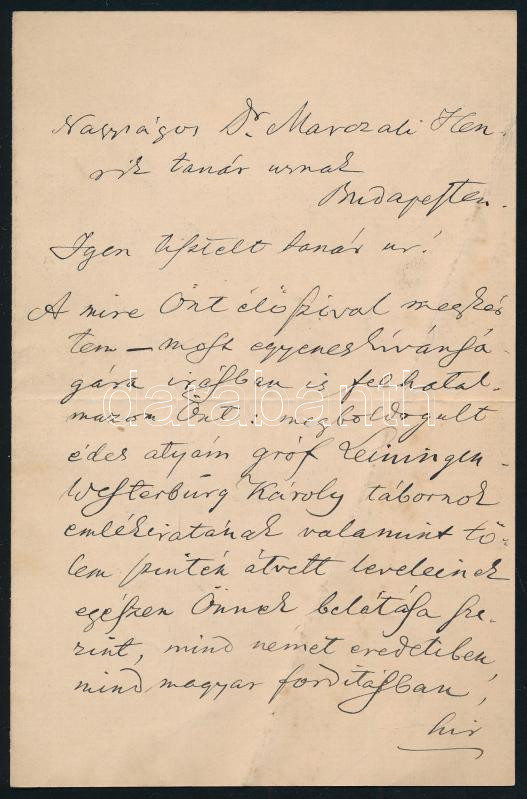 Nagyságos Dr. Marczali Hen-
rik tanár urnak
Budapesten.
Igen tisztelt tanár ur!
A mire Önt élőszóval megkér-
tem – most egyenes kívánsá-
gára irásban is felhatal-
mazom Önt: megboldogult
édes atyám gróf Leiningen-
Westerburg Károly tábornok
emlékiratának valamint tő-
lem szintén átvett leveleinek
egészen Önnek belátása sze-
rint, mind német eredetiben,
mind magyar fordításban,
darabanth